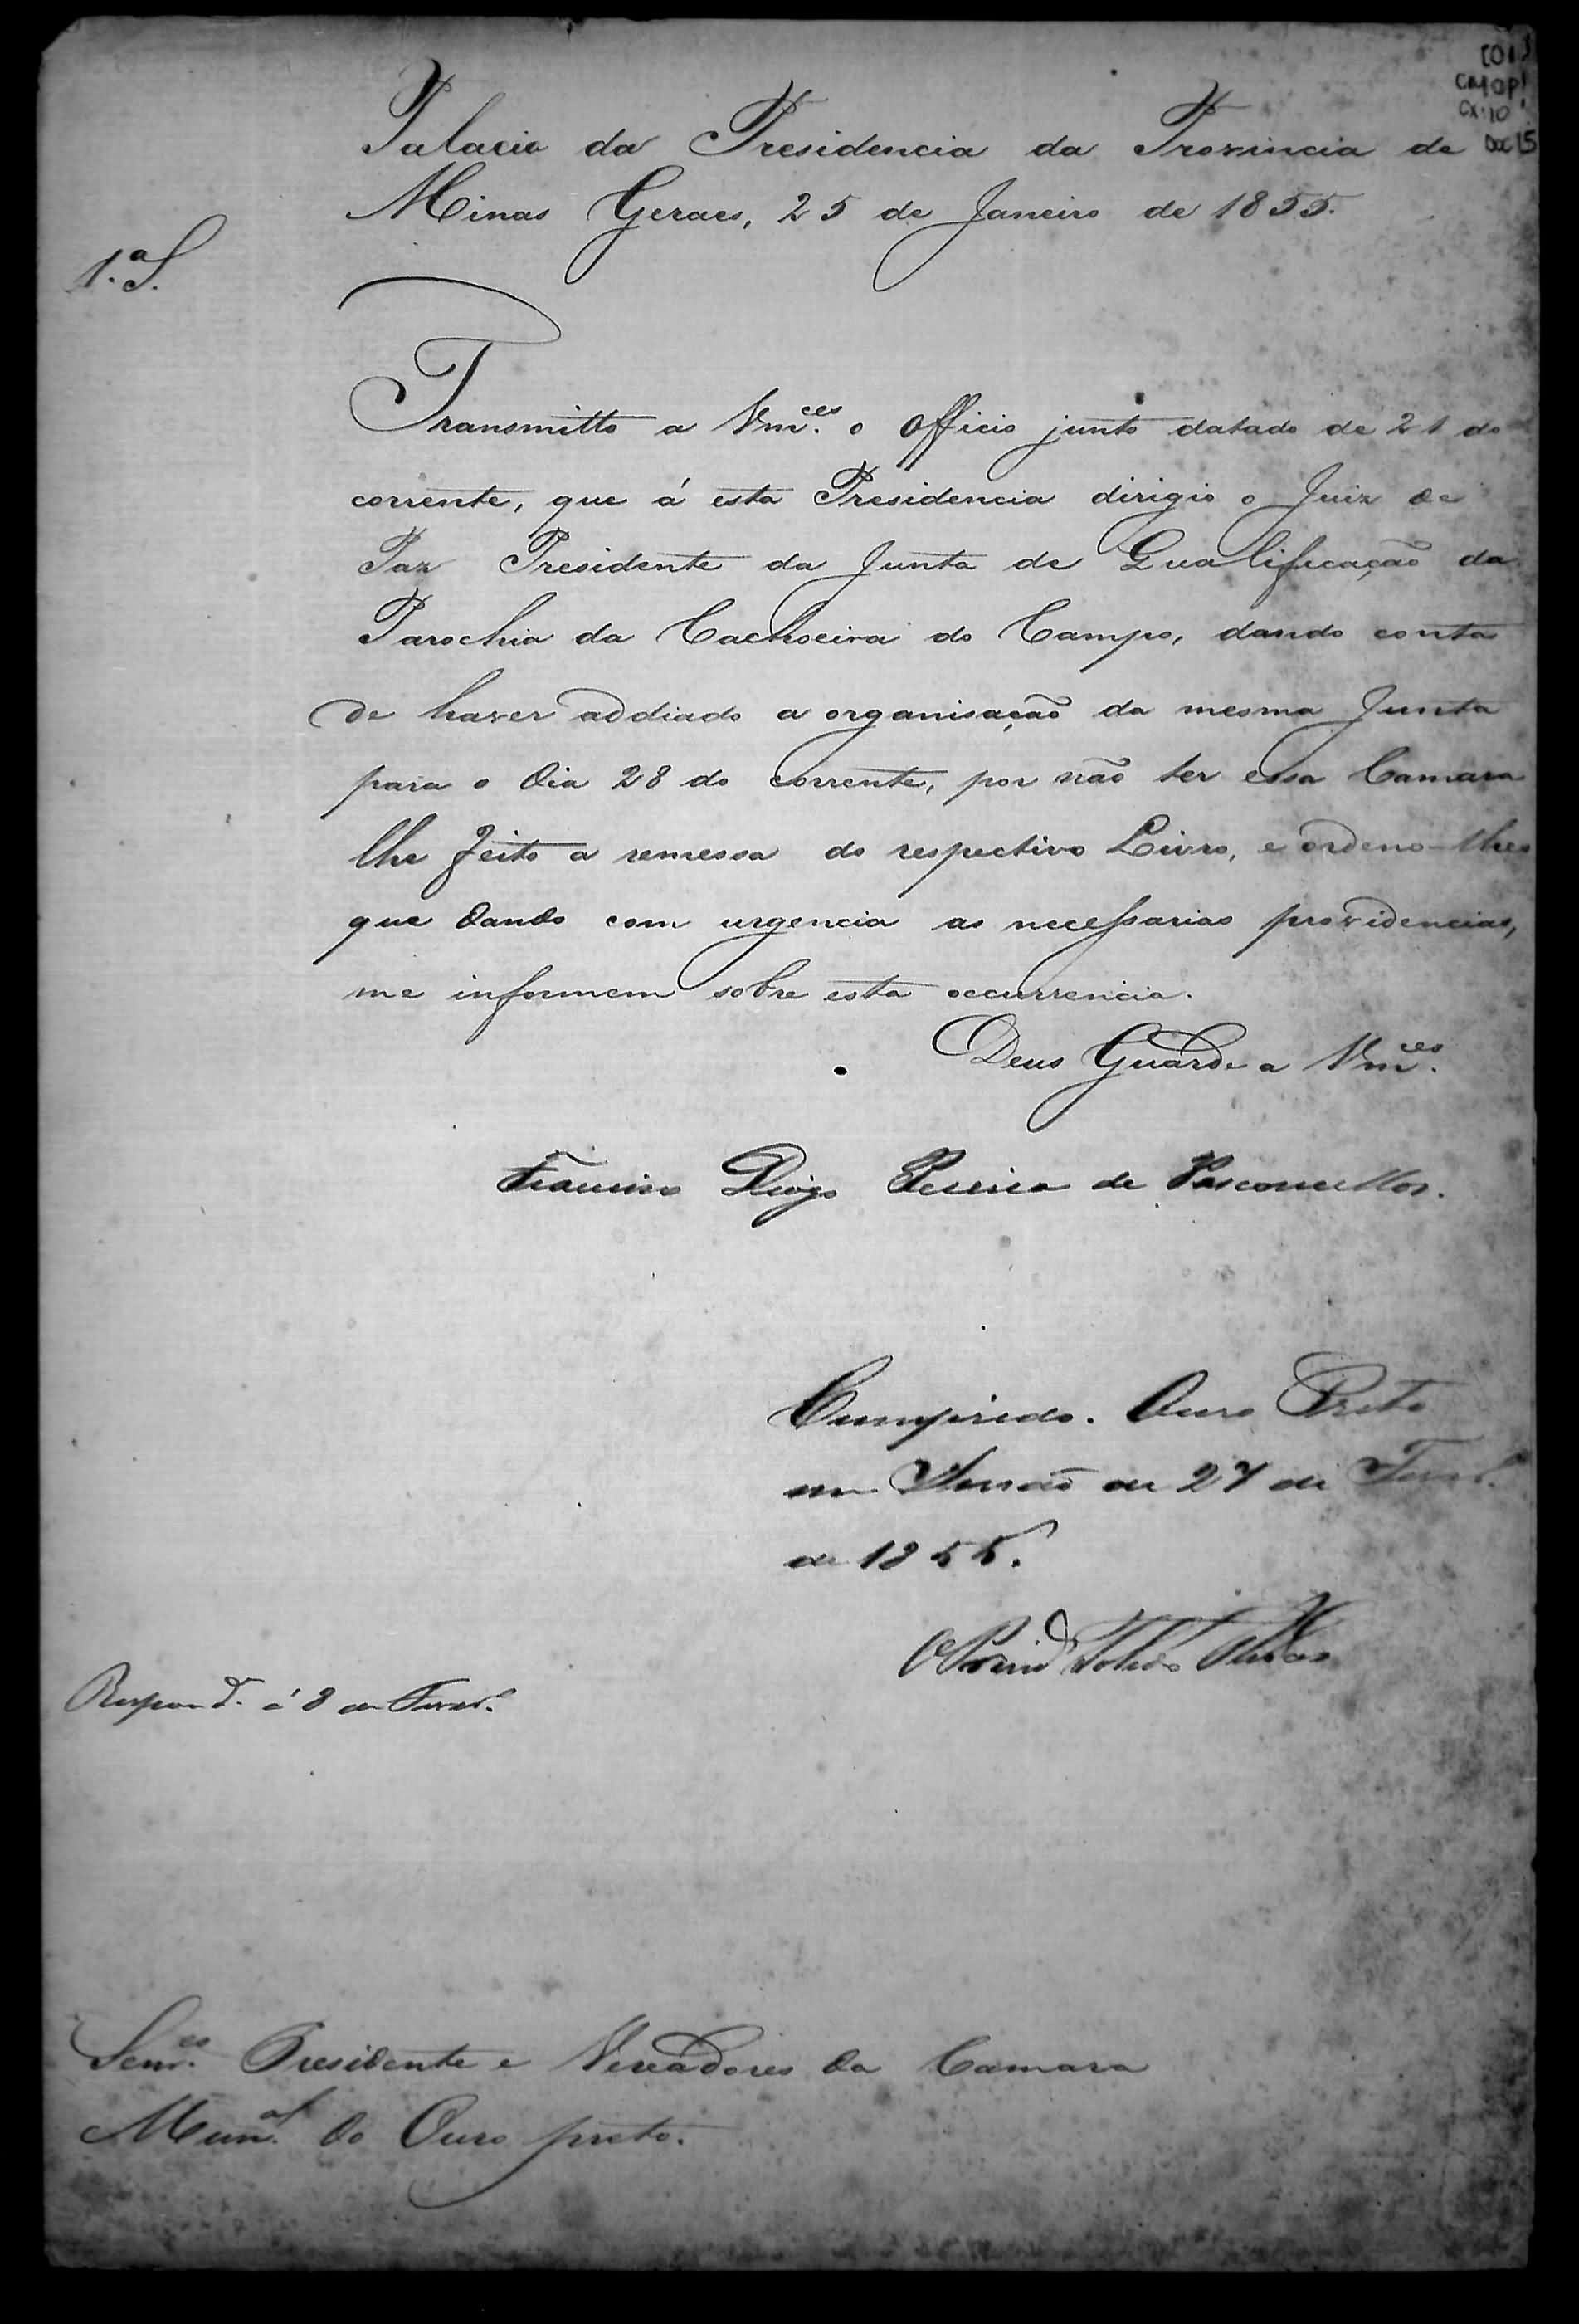 [01]
CMOP
CX.10
Doc 15
Palacio da Presidencia da Provincia de
Minas Geraes, 25 de Janeiro de 1855.
1.ª S.
Transmitto a Vm.ces o officio junto datado de 21 do
corrente, que á esta Presidencia dirigio o Juiz de
Paz Presidente da Junta de Qualificação da
Parochia da Cachoeira do Campo, dando conta
de haver addiado a organisação da mesma Junta
para o dia 28 do corrente, por não ter essa Camara
lhe feito a remessa do respectivo Livro, e ordeno-lhes
que dando com urgencia as necessarias providencias,
me informem sobre esta occurrencia.
Deus Guarde a Vm.ces
Francisco Diogo Pereira de Vasconcellos.
Cumprido. Ouro Preto
em Sessão de 27 de Fever.º
de 1855.
O Presid.
Respond.º á 8 de Fever.º
Senr.es Presidente e Vereadores da Camara
Mun.al do Ouro preto.